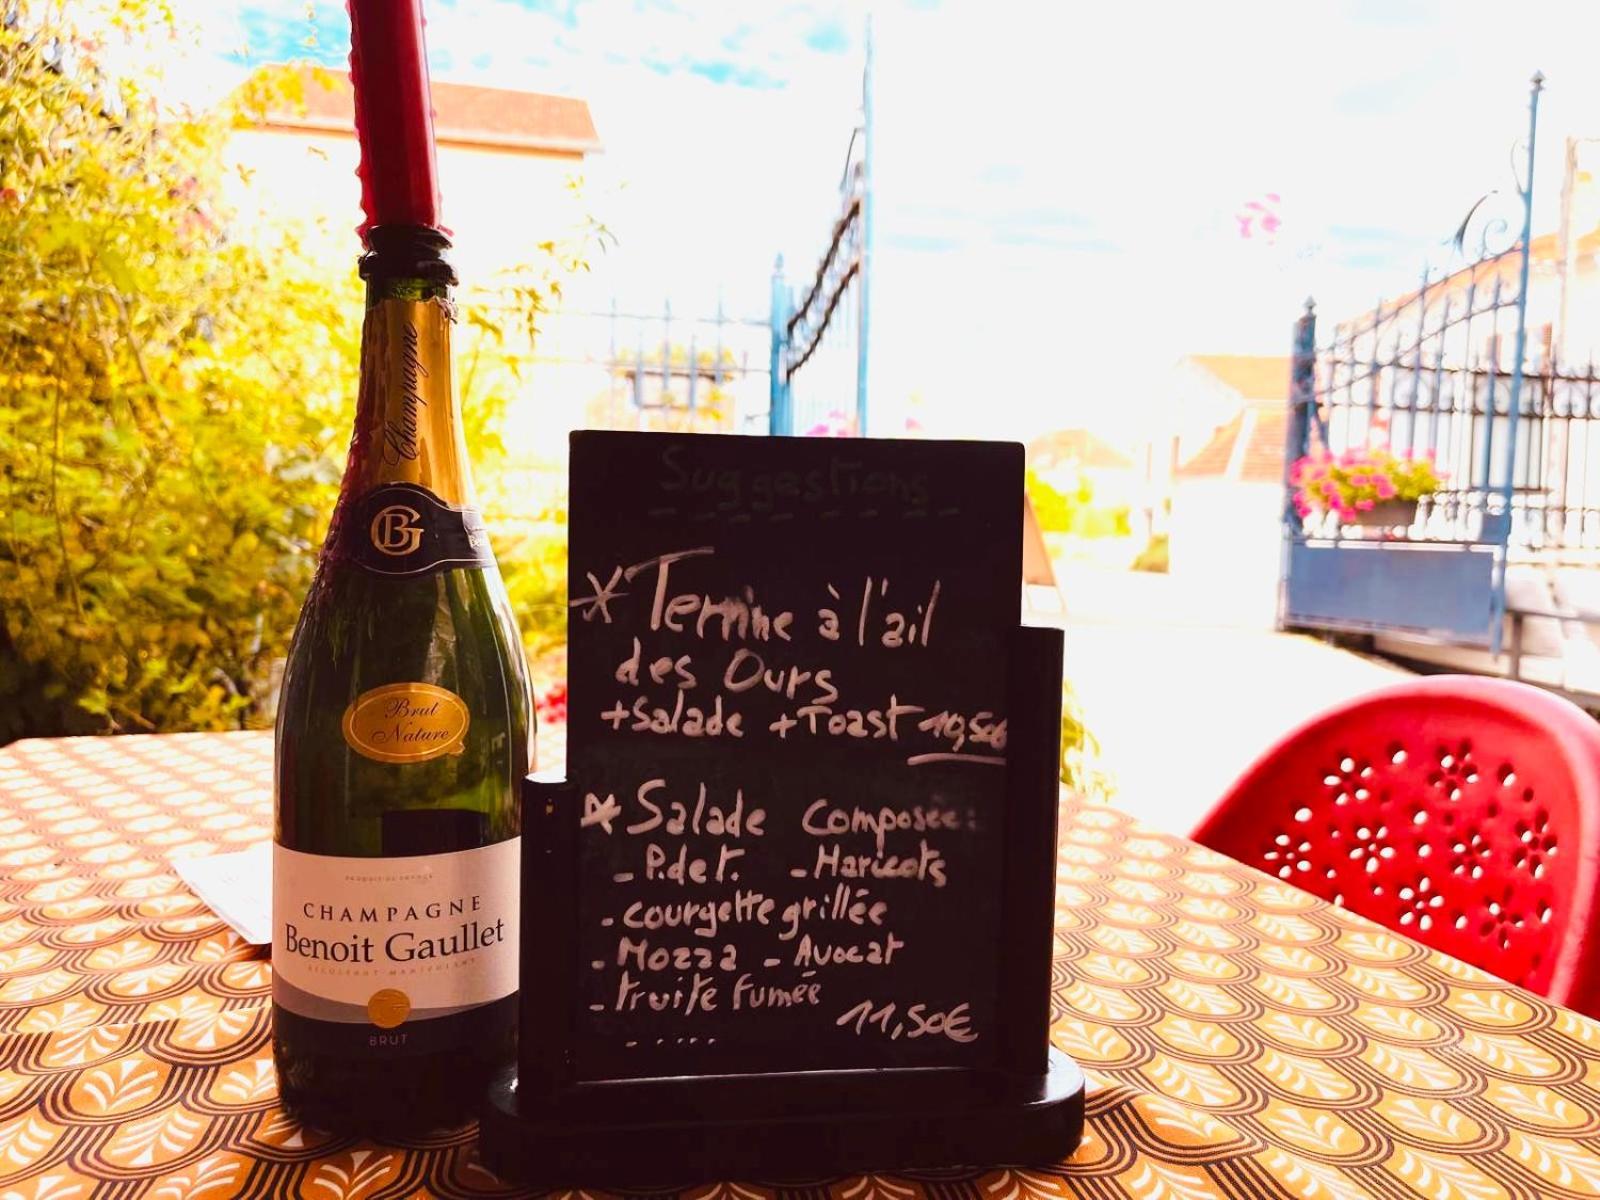 Champagne
BG
Brut
Nature
PRODUIT DE FRANCE
CHAMPAGNE
Benoit Gaullet
RÉCOLTANT MANIPULANT
BRUT
Suggestions
* Terrine à l'ail
des Ours
+Salade +Toast 10,50€
* Salade Composée:
- P.de T. - Haricots
- courgette grillée
- Mozza - Avocat
- truite fumée
11,50€
- ....